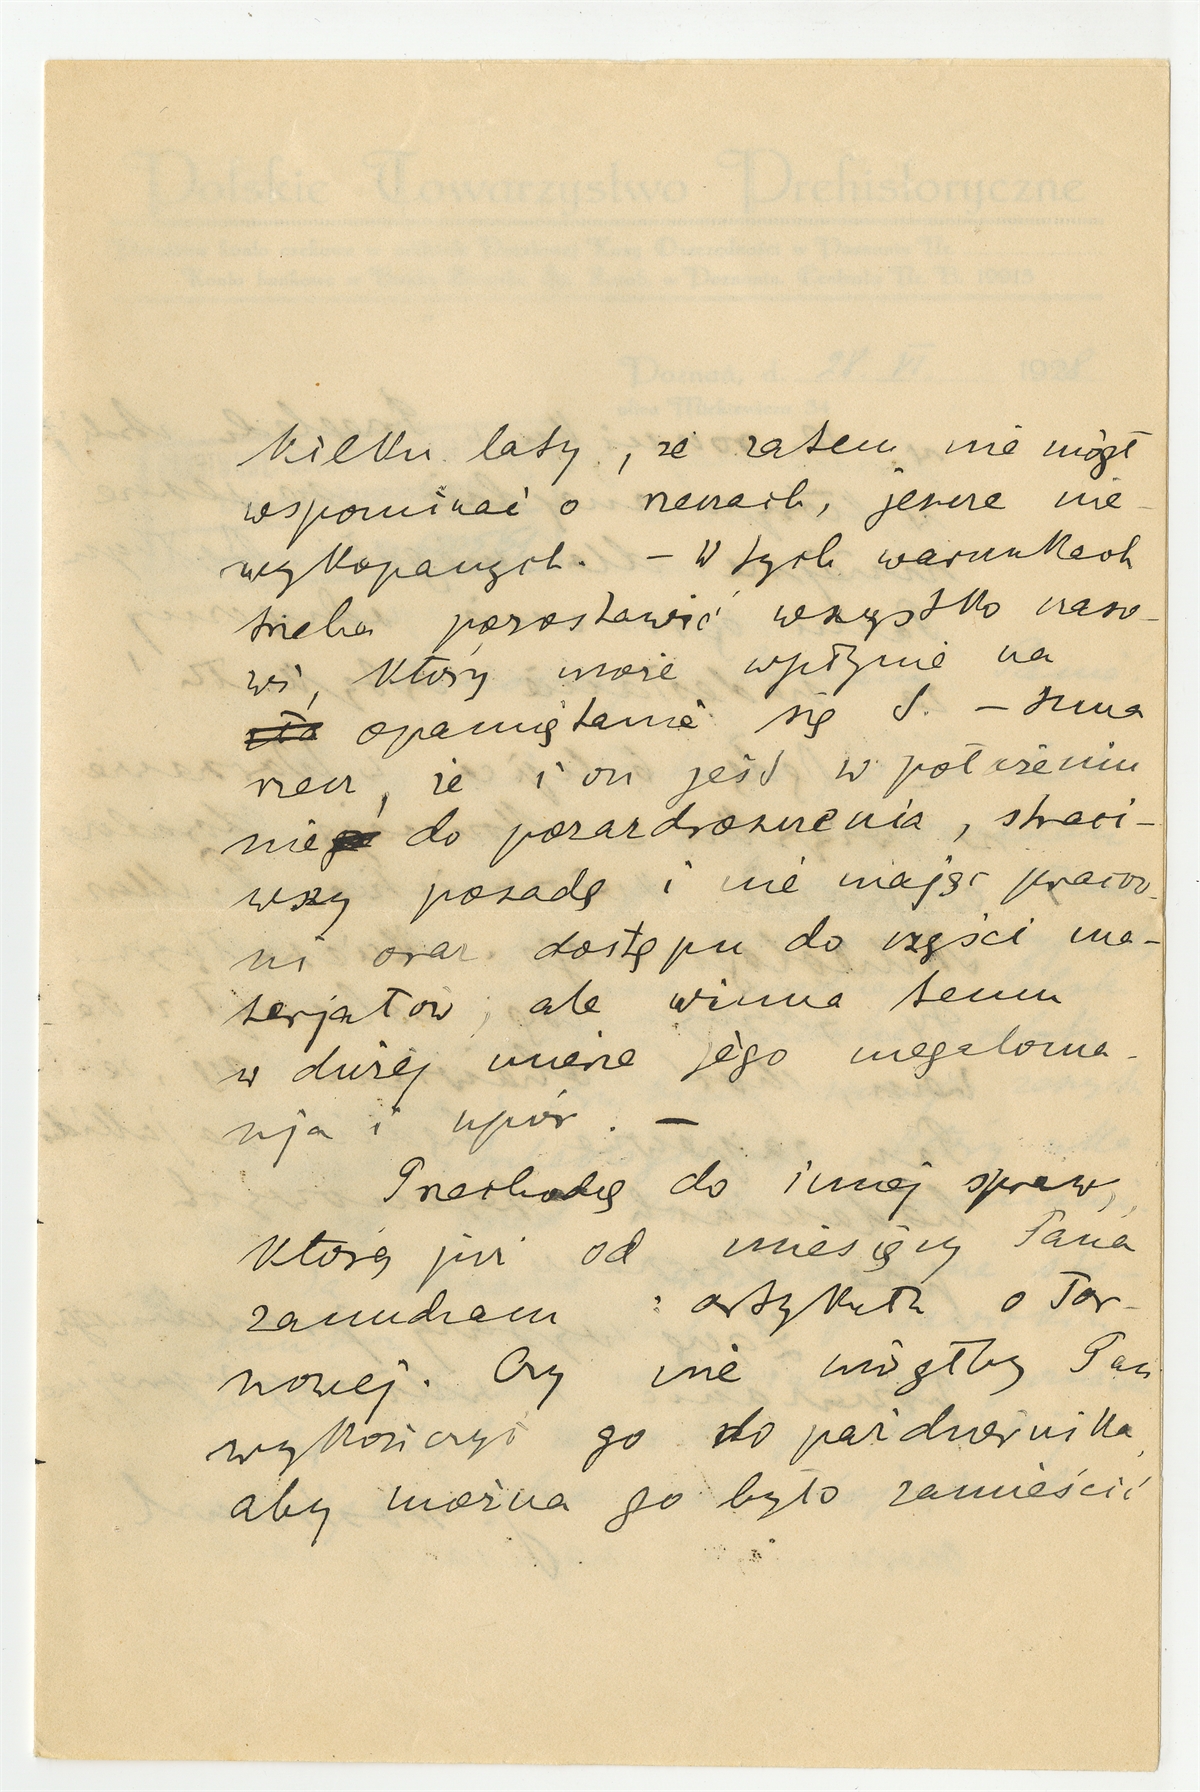 Polskie Towarzystwo Prehistoryczne
Poznań, d. 28. VI. 1928
kilku laty, że zatem nie mógł
wspominać o rzeczach, jeszcze nie-
wykopanych. – W tych warunkach
trzeba pozostawić wszystko czaso-
wi, który może wpłynie na
opamiętanie się S. – Inna
rzecz, że i on jest w położeniu
nie do pozazdroszczenia, straci-
wszy posadę i nie mając pracow-
ni oraz dostępu do części ma-
terjałów, ale winna temu
w dużej mierze jego megaloma-
nja i upór. –
Przechodzę do innej spraw,
którą już od miesięcy Pana
zanudzam: artykułu o Tar-
nowej. Czy nie mógłby Pan
wykończyć go do października,
aby można go było zamieścić